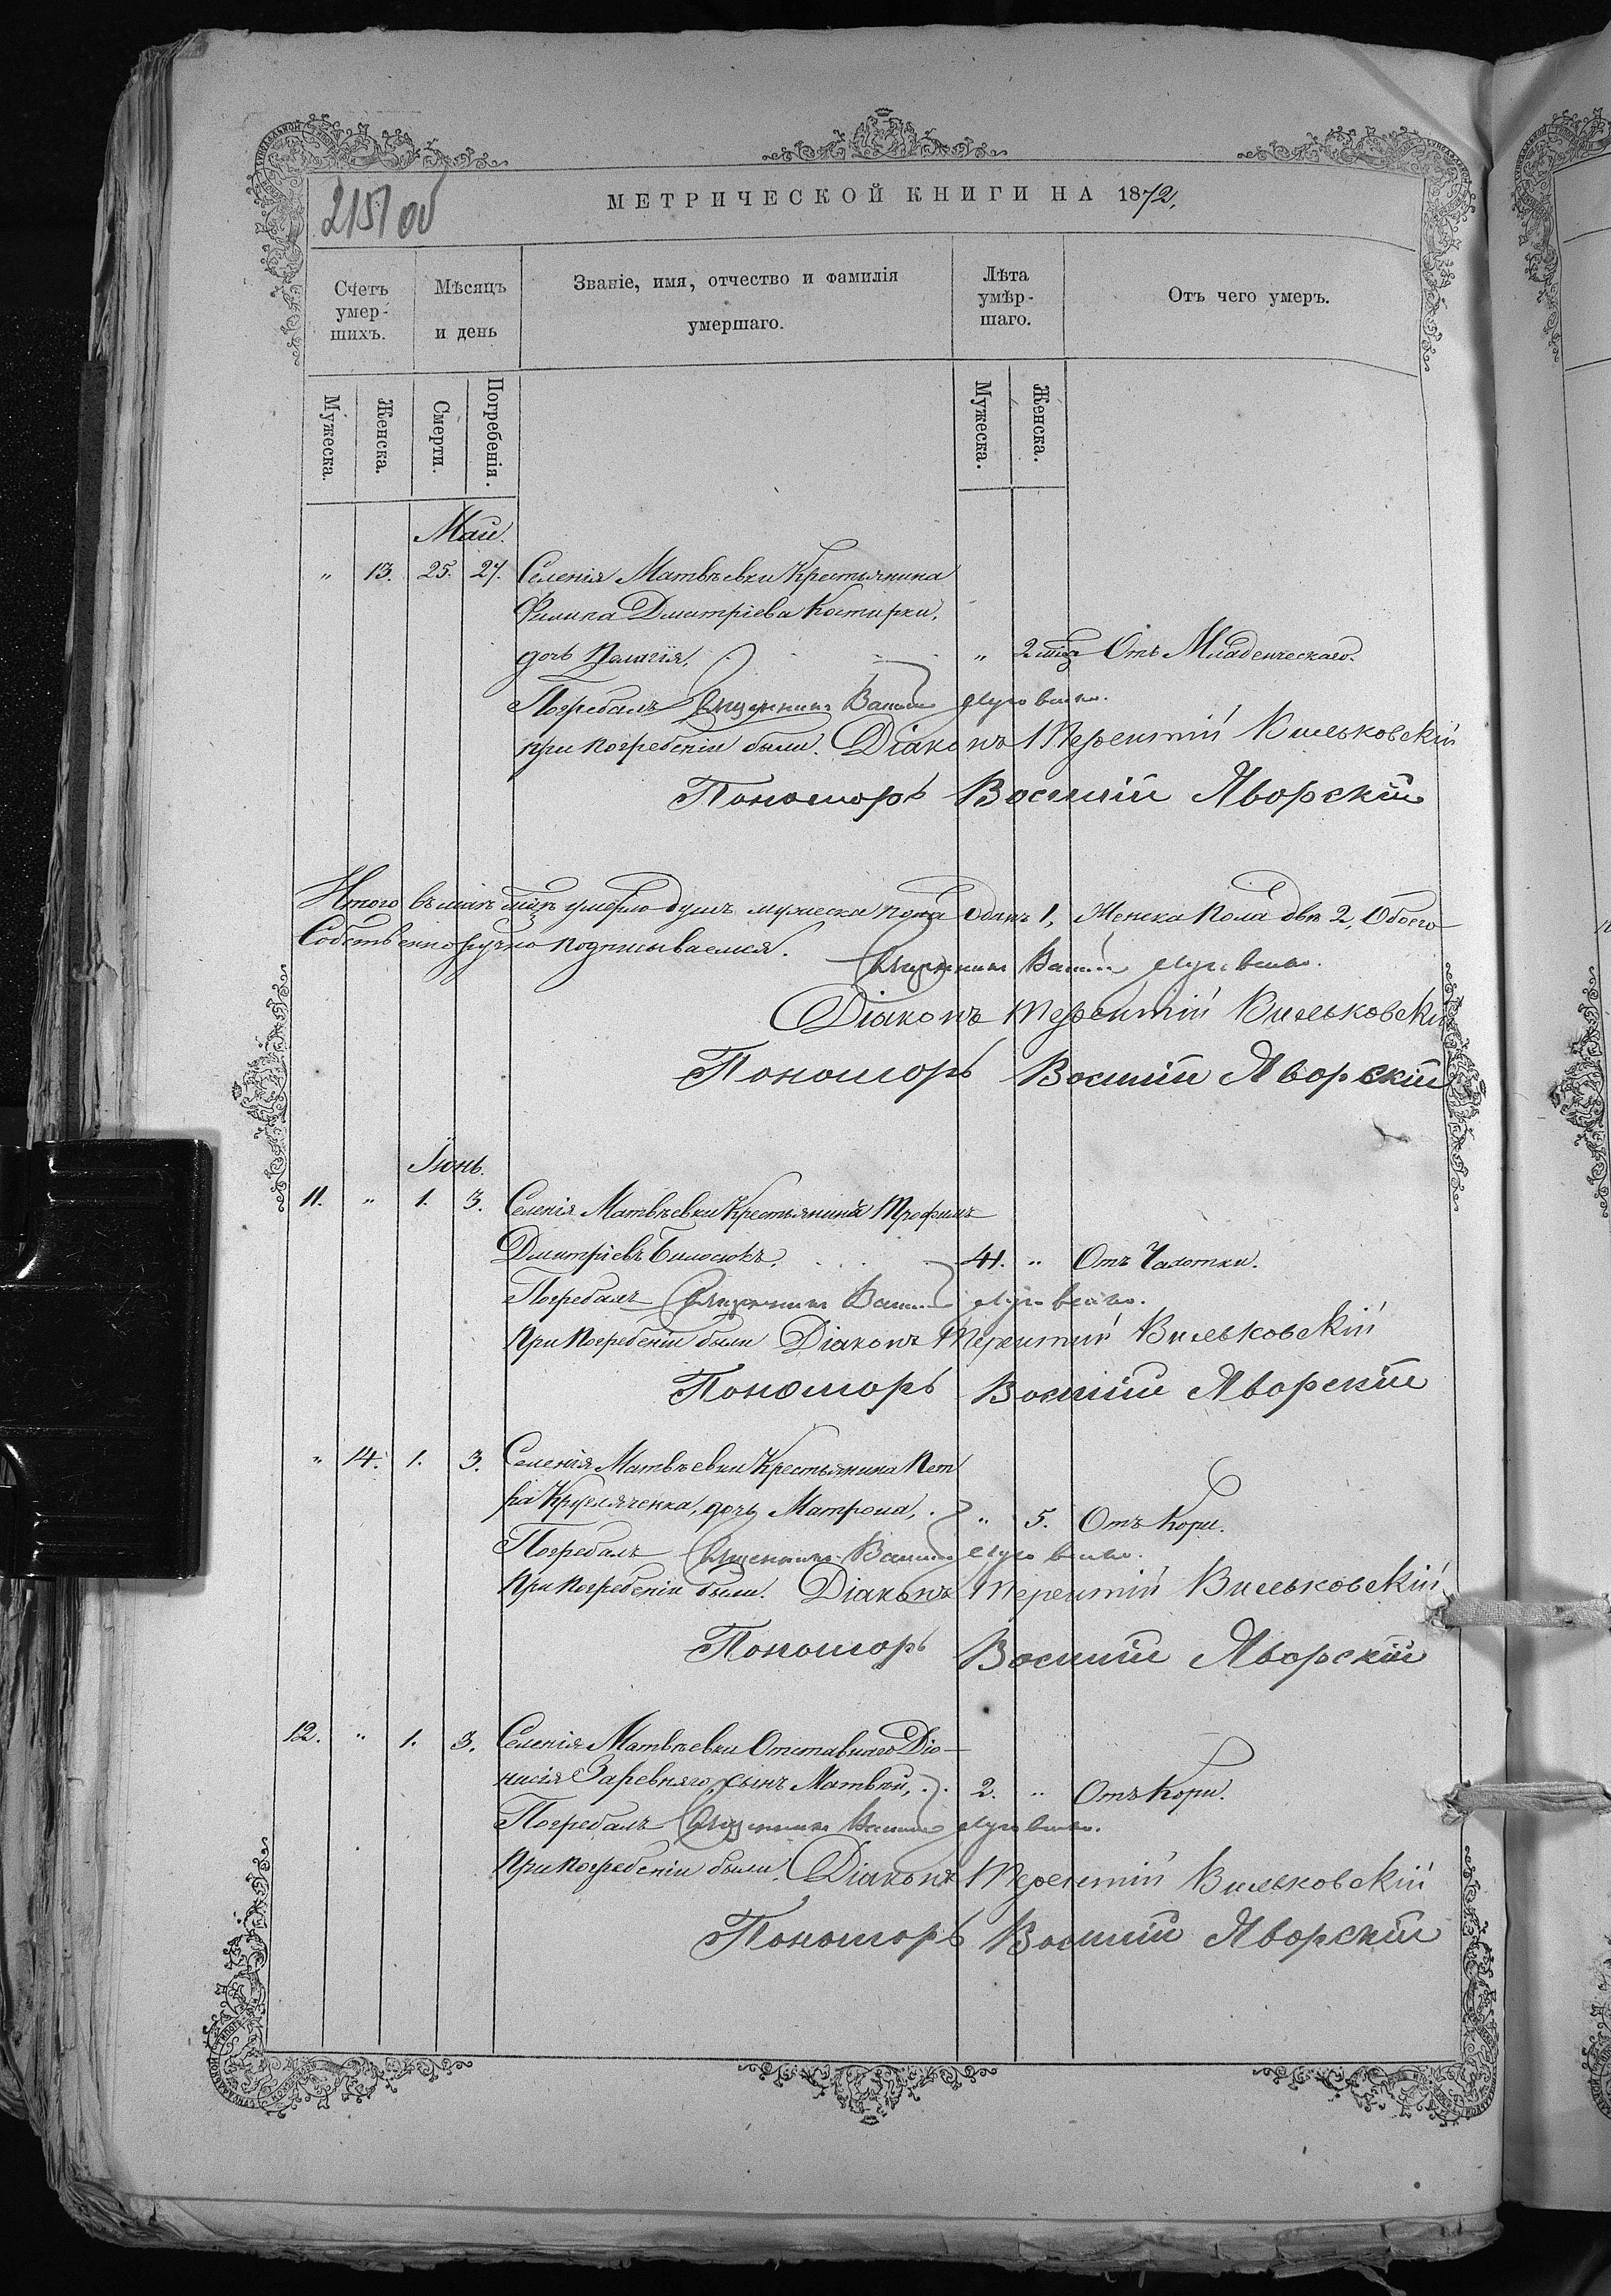 215 об
МЕТРИЧЕСКОЙ КНИГИ НА 1872,
Счетъ умер-шихъ.
Мѣсяцъ и день
Званіе, имя, отчество и фамилія умершаго.
Лѣта умѣр-шаго.
Отъ чего умеръ.
Мужеска.
Женска.
Смерти.
Погребенія.
Мужеска.
Женска.
Май.
" 13. 25. 27. Селенія Матвѣевки Крестьянина
Филипа Дмитріева Костирки,
дочь Пелагія. " 2 мѣц Отъ Младенческаго.
Погребалъ Священникъ
при погребеніи были. Діаконъ Терентій Вильковскій
Пономарь Васілій Яворскій
Итого въ маѣ мцѣ умерло душъ мужеска пола одинъ 1, Женска пола двѣ 2, Обоего
Собственноручно подписываемся.
Священникъ
Діаконъ Терентій Вильковскій
Пономарь Васілій Яворскій
Іюнь.
11. " 1. 3. Селенія Матвѣевки Крестьянинъ Трофимъ
Дмитріевъ 41. " Отъ Чахотки.
Погребалъ Священникъ
При погребеніи были Діаконъ Терентій Вильковскій
Пономарь Васілій Яворскій
" 14. 1. 3. Селенія Матвѣевки Крестьянина Пет
ра дочь Матрона, " 5. Отъ Кори.
Погребалъ Священникъ
При погребеніи были. Діаконъ Терентій Вильковскій
Пономарь Васілій Яворскій
12. " 1. 3. Селенія Матвѣевки Отставнаго Діо-
нисія Заревняго, сынъ Матвѣй, 2. " Отъ Кори.
Погребалъ Священникъ
При погребеніи были. Діаконъ Терентій Вильковскій
Пономарь Васілій Яворскій